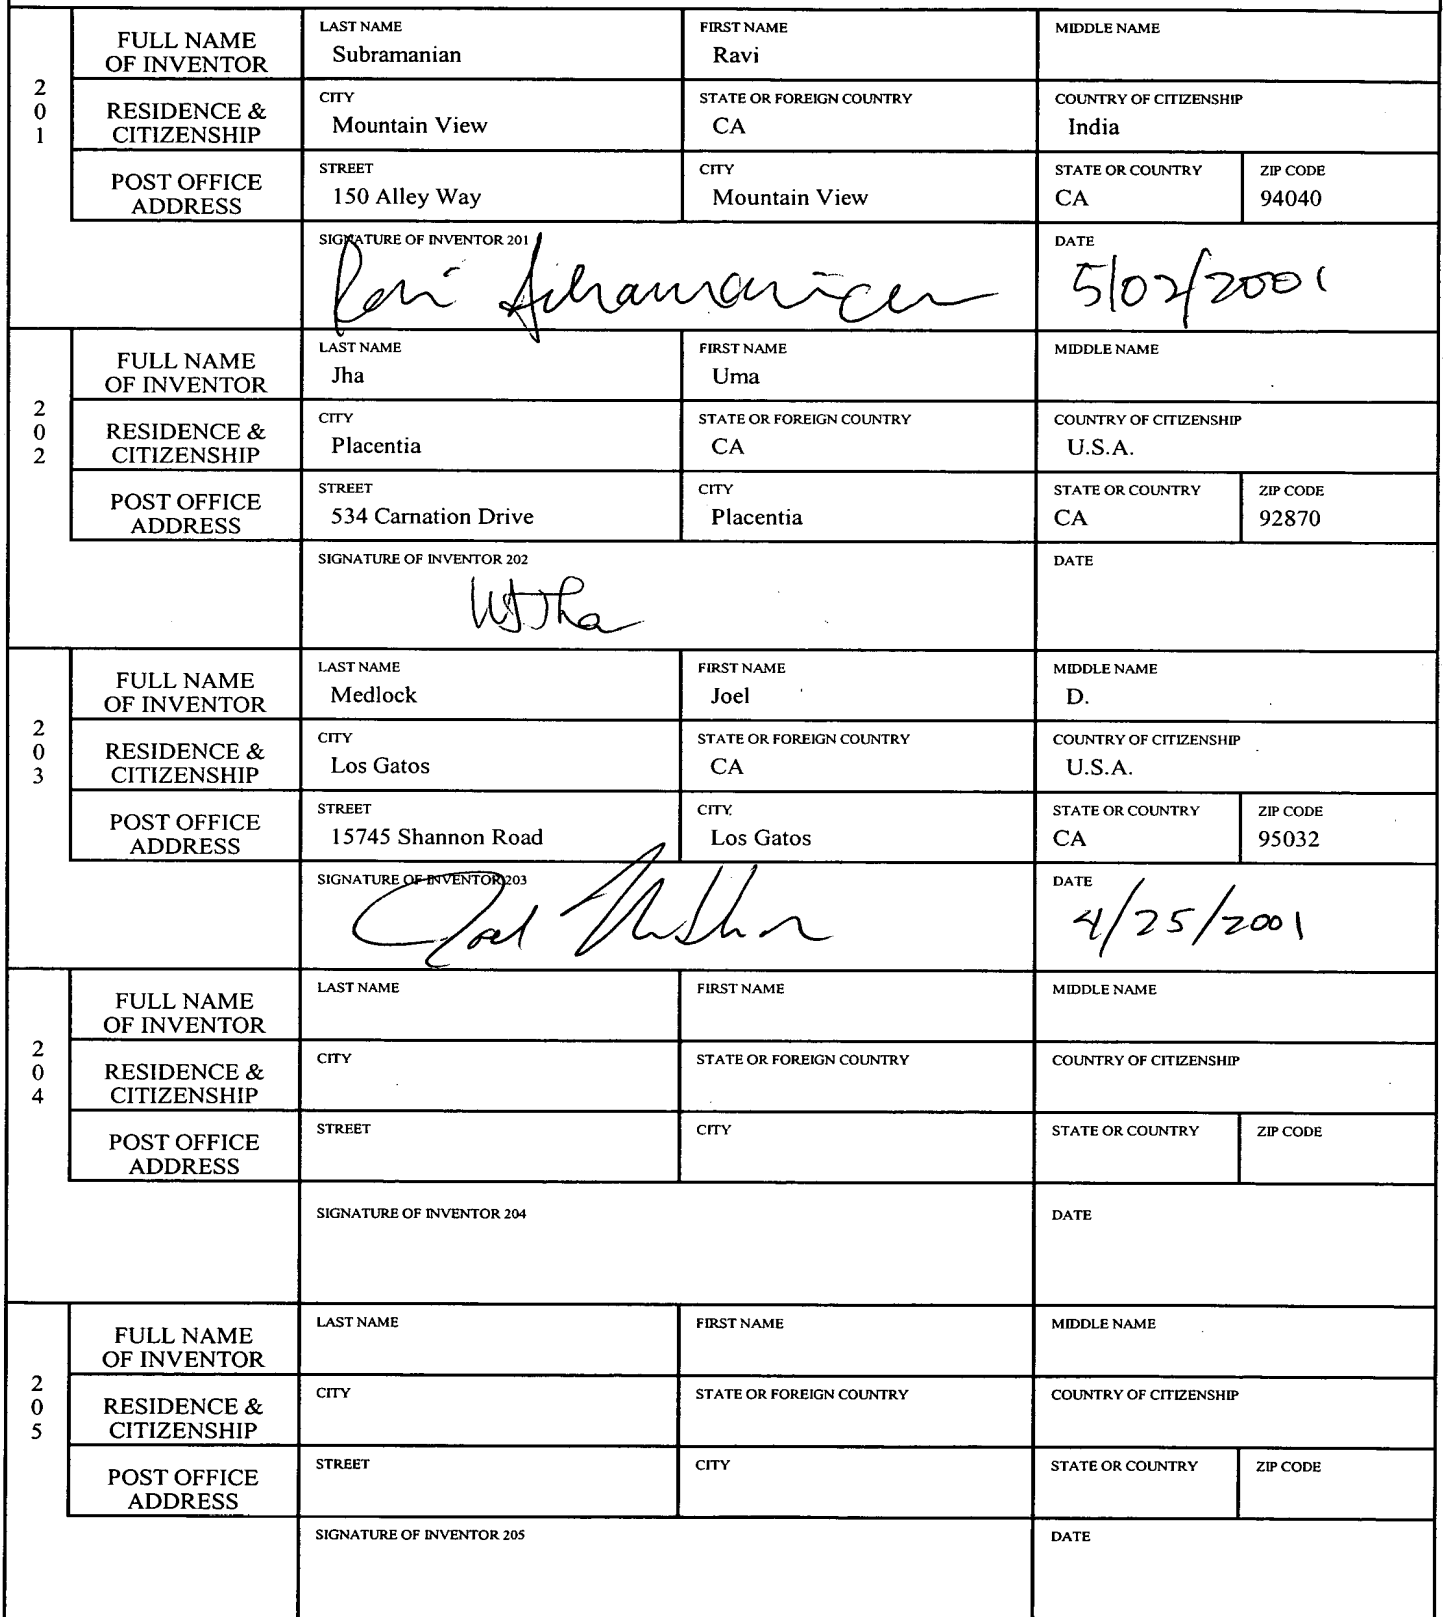 201
FULL NAME OF INVENTOR
LAST NAME
Subramanian
FIRST NAME
Ravi
MIDDLE NAME
RESIDENCE & CITIZENSHIP
CITY
Mountain View
STATE OR FOREIGN COUNTRY
CA
COUNTRY OF CITIZENSHIP
India
POST OFFICE ADDRESS
STREET
150 Alley Way
CITY
Mountain View
STATE OR COUNTRY
CA
ZIP CODE
94040
SIGNATURE OF INVENTOR 201
Ravi Subramanian
DATE
5/02/2001
202
FULL NAME OF INVENTOR
LAST NAME
Jha
FIRST NAME
Uma
MIDDLE NAME
RESIDENCE & CITIZENSHIP
CITY
Placentia
STATE OR FOREIGN COUNTRY
CA
COUNTRY OF CITIZENSHIP
U.S.A.
POST OFFICE ADDRESS
STREET
534 Carnation Drive
CITY
Placentia
STATE OR COUNTRY
CA
ZIP CODE
92870
SIGNATURE OF INVENTOR 202
DATE
203
FULL NAME OF INVENTOR
LAST NAME
Medlock
FIRST NAME
Joel
MIDDLE NAME
D.
RESIDENCE & CITIZENSHIP
CITY
Los Gatos
STATE OR FOREIGN COUNTRY
CA
COUNTRY OF CITIZENSHIP
U.S.A.
POST OFFICE ADDRESS
STREET
15745 Shannon Road
CITY
Los Gatos
STATE OR COUNTRY
CA
ZIP CODE
95032
SIGNATURE OF INVENTOR 203
Joel
DATE
4/25/2001
204
FULL NAME OF INVENTOR
LAST NAME
FIRST NAME
MIDDLE NAME
RESIDENCE & CITIZENSHIP
CITY
STATE OR FOREIGN COUNTRY
COUNTRY OF CITIZENSHIP
POST OFFICE ADDRESS
STREET
CITY
STATE OR COUNTRY
ZIP CODE
SIGNATURE OF INVENTOR 204
DATE
205
FULL NAME OF INVENTOR
LAST NAME
FIRST NAME
MIDDLE NAME
RESIDENCE & CITIZENSHIP
CITY
STATE OR FOREIGN COUNTRY
COUNTRY OF CITIZENSHIP
POST OFFICE ADDRESS
STREET
CITY
STATE OR COUNTRY
ZIP CODE
SIGNATURE OF INVENTOR 205
DATE